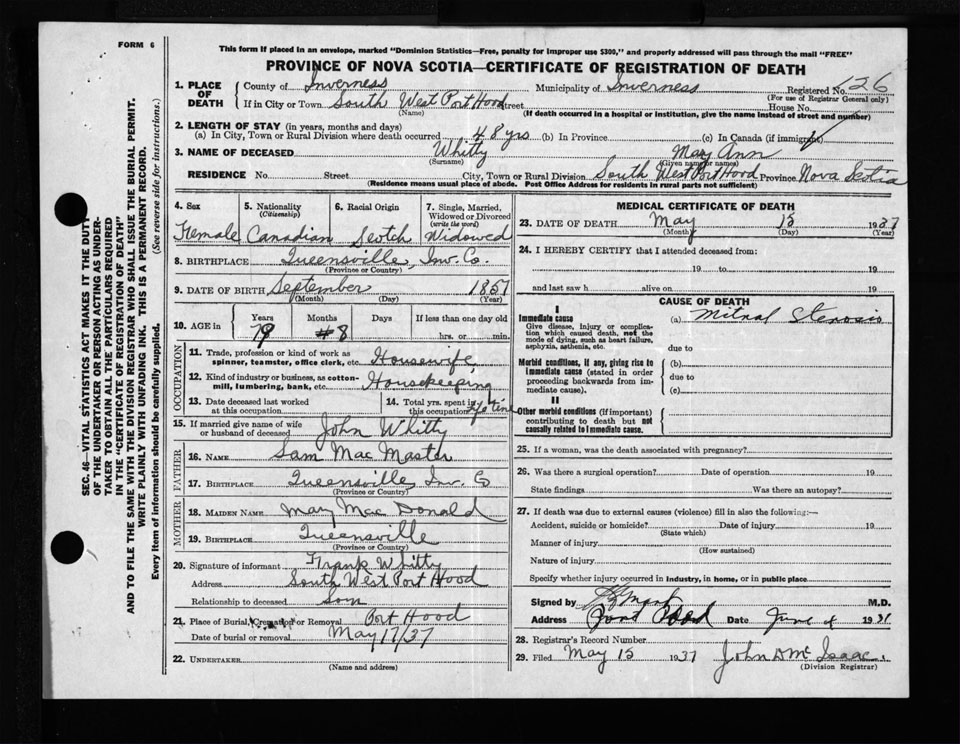 FORM 6
This form if placed in an envelope, marked "Dominion Statistics—Free, penalty for improper use $300," and properly addressed will pass through the mail "FREE"
PROVINCE OF NOVA SCOTIA—CERTIFICATE OF REGISTRATION OF DEATH
1. PLACE OF DEATH
County of Inverness Municipality of Inverness Registered No. 126
(For use of Registrar General only)
If in City or Town South West Port Hood Street House No.
(Name) (If death occurred in a hospital or institution, give the name instead of street and number)
2. LENGTH OF STAY (in years, months and days)
(a) In City, Town or Rural Division where death occurred 48 yrs (b) In Province (c) In Canada (if immigrant)
3. NAME OF DECEASED Whitty Mary Ann
(Surname) (Given name or names)
RESIDENCE No. Street City, Town or Rural Division South West Port Hood Province Nova Scotia
(Residence means usual place of abode. Post Office Address for residents in rural parts not sufficient)
4. Sex
Female
5. Nationality
(Citizenship)
Canadian
6. Racial Origin
Scotch
7. Single, Married, Widowed or Divorced
(write the word)
Widowed
8. BIRTHPLACE Queensville, Inv. Co.
(Province or Country)
9. DATE OF BIRTH September 1857
(Month) (Day) (Year)
10. AGE in
Years Months Days If less than one day old
79 8 hrs. or min.
OCCUPATION
11. Trade, profession or kind of work as spinner, teamster, office clerk, etc. Housewife
12. Kind of industry or business, as cotton-mill, lumbering, bank, etc. Housekeeping
13. Date deceased last worked at this occupation
14. Total yrs. spent in this occupation Life Time
15. If married give name of wife or husband of deceased John Whitty
FATHER
16. NAME Sam Mac Master
17. BIRTHPLACE Queensville, Inv. Co
(Province or Country)
MOTHER
18. MAIDEN NAME Mary Mac Donald
19. BIRTHPLACE Queensville
(Province or Country)
20. Signature of informant Frank Whitty
Address South West Port Hood
Relationship to deceased Son
21. Place of Burial, Cremation or Removal Port Hood
Date of burial or removal May 17/37
22. UNDERTAKER
(Name and address)
MEDICAL CERTIFICATE OF DEATH
23. DATE OF DEATH May 15 1937
(Month) (Day) (Year)
24. I HEREBY CERTIFY that I attended deceased from:
19 to 19
and last saw h alive on 19
CAUSE OF DEATH
I
Immediate cause
Give disease, injury or complication which caused death, not the mode of dying, such as heart failure, asphyxia, asthenia, etc.
(a) Mitral Stenosis
due to
Morbid conditions, if any, giving rise to immediate cause (stated in order proceeding backwards from immediate cause).
(b)
due to
(c)
II
Other morbid conditions (if important) contributing to death but not causally related to immediate cause.
25. If a woman, was the death associated with pregnancy?
26. Was there a surgical operation? Date of operation 19
State findings Was there an autopsy?
27. If death was due to external causes (violence) fill in also the following:—
Accident, suicide or homicide? Date of injury 19
(State which)
Manner of injury
(How sustained)
Nature of injury
Specify whether injury occurred in industry, in home, or in public place
Signed by M.D.
Address Port Hood Date June 4 1937
28. Registrar's Record Number
29. Filed May 15 1937 John D Mc Isaac
(Division Registrar)
SEC. 46—VITAL STATISTICS ACT MAKES IT THE DUTY
OF THE UNDERTAKER OR PERSON ACTING AS UNDER-
TAKER TO OBTAIN ALL THE PARTICULARS REQUIRED
IN THE "CERTIFICATE OF REGISTRATION OF DEATH"
AND TO FILE THE SAME WITH THE DIVISION REGISTRAR WHO SHALL ISSUE THE BURIAL PERMIT.
WRITE PLAINLY WITH UNFADING INK. THIS IS A PERMANENT RECORD.
Every item of information should be carefully supplied. (See reverse side for instructions.)